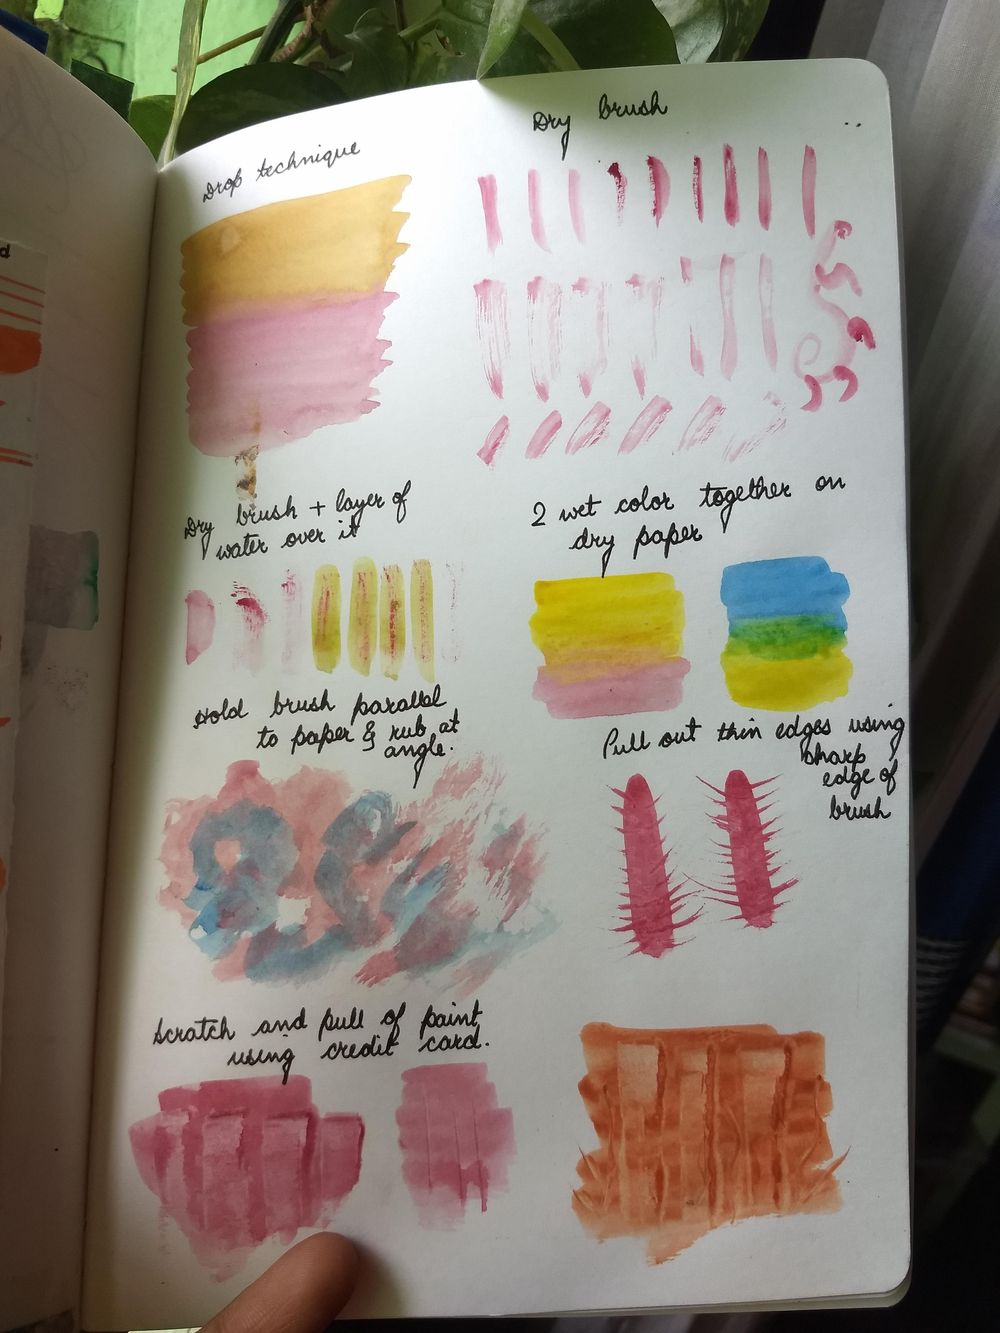 Drop technique
Dry brush
Dry brush + layer of
water over it
2 wet color together on
dry paper
Hold brush parallel
to paper & rub at
angle.
Pull out thin edges using
sharp
edge of
brush
Scratch and pull of paint
using credit card.
d